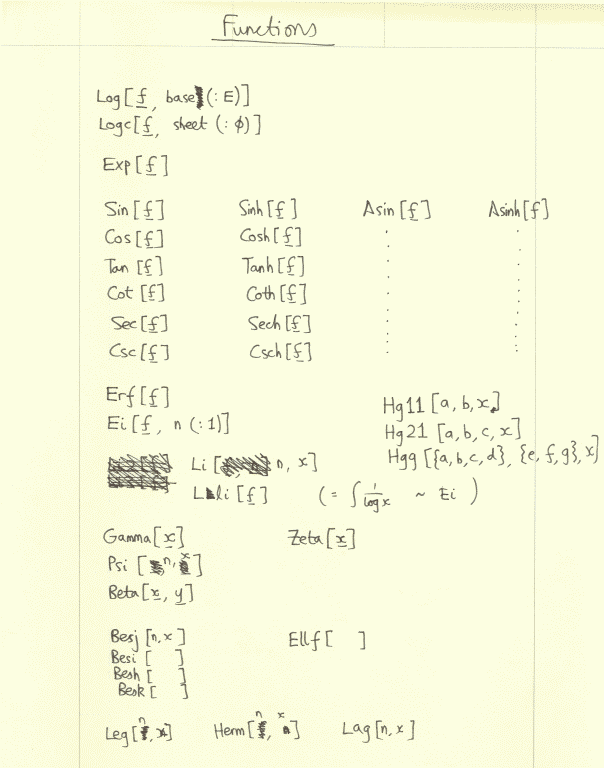 Functions
Log[f, base (:E)]
Logc[f, sheet (:ϕ)]
Exp[f]
Sin[f] Sinh[f] Asin[f] Asinh[f]
Cos[f] Cosh[f]
Tan[f] Tanh[f]
Cot[f] Coth[f]
Sec[f] Sech[f]
Csc[f] Csch[f]
Erf[f] Hg11[a,b,x]
Ei[f, n (:1)] Hg21[a,b,c,x]
Hgg[{a,b,c,d}, {e,f,g}, x]
Li[n, x]
Lili[f] (= ∫ 1/log x ~ Ei )
Gamma[x] Zeta[x]
Psi[n, x]
Beta[x, y]
Besj[n,x] Ellf[ ]
Besi[ ]
Besh[ ]
Besk[ ]
Leg[n, x] Herm[n, x] Lag[n, x]